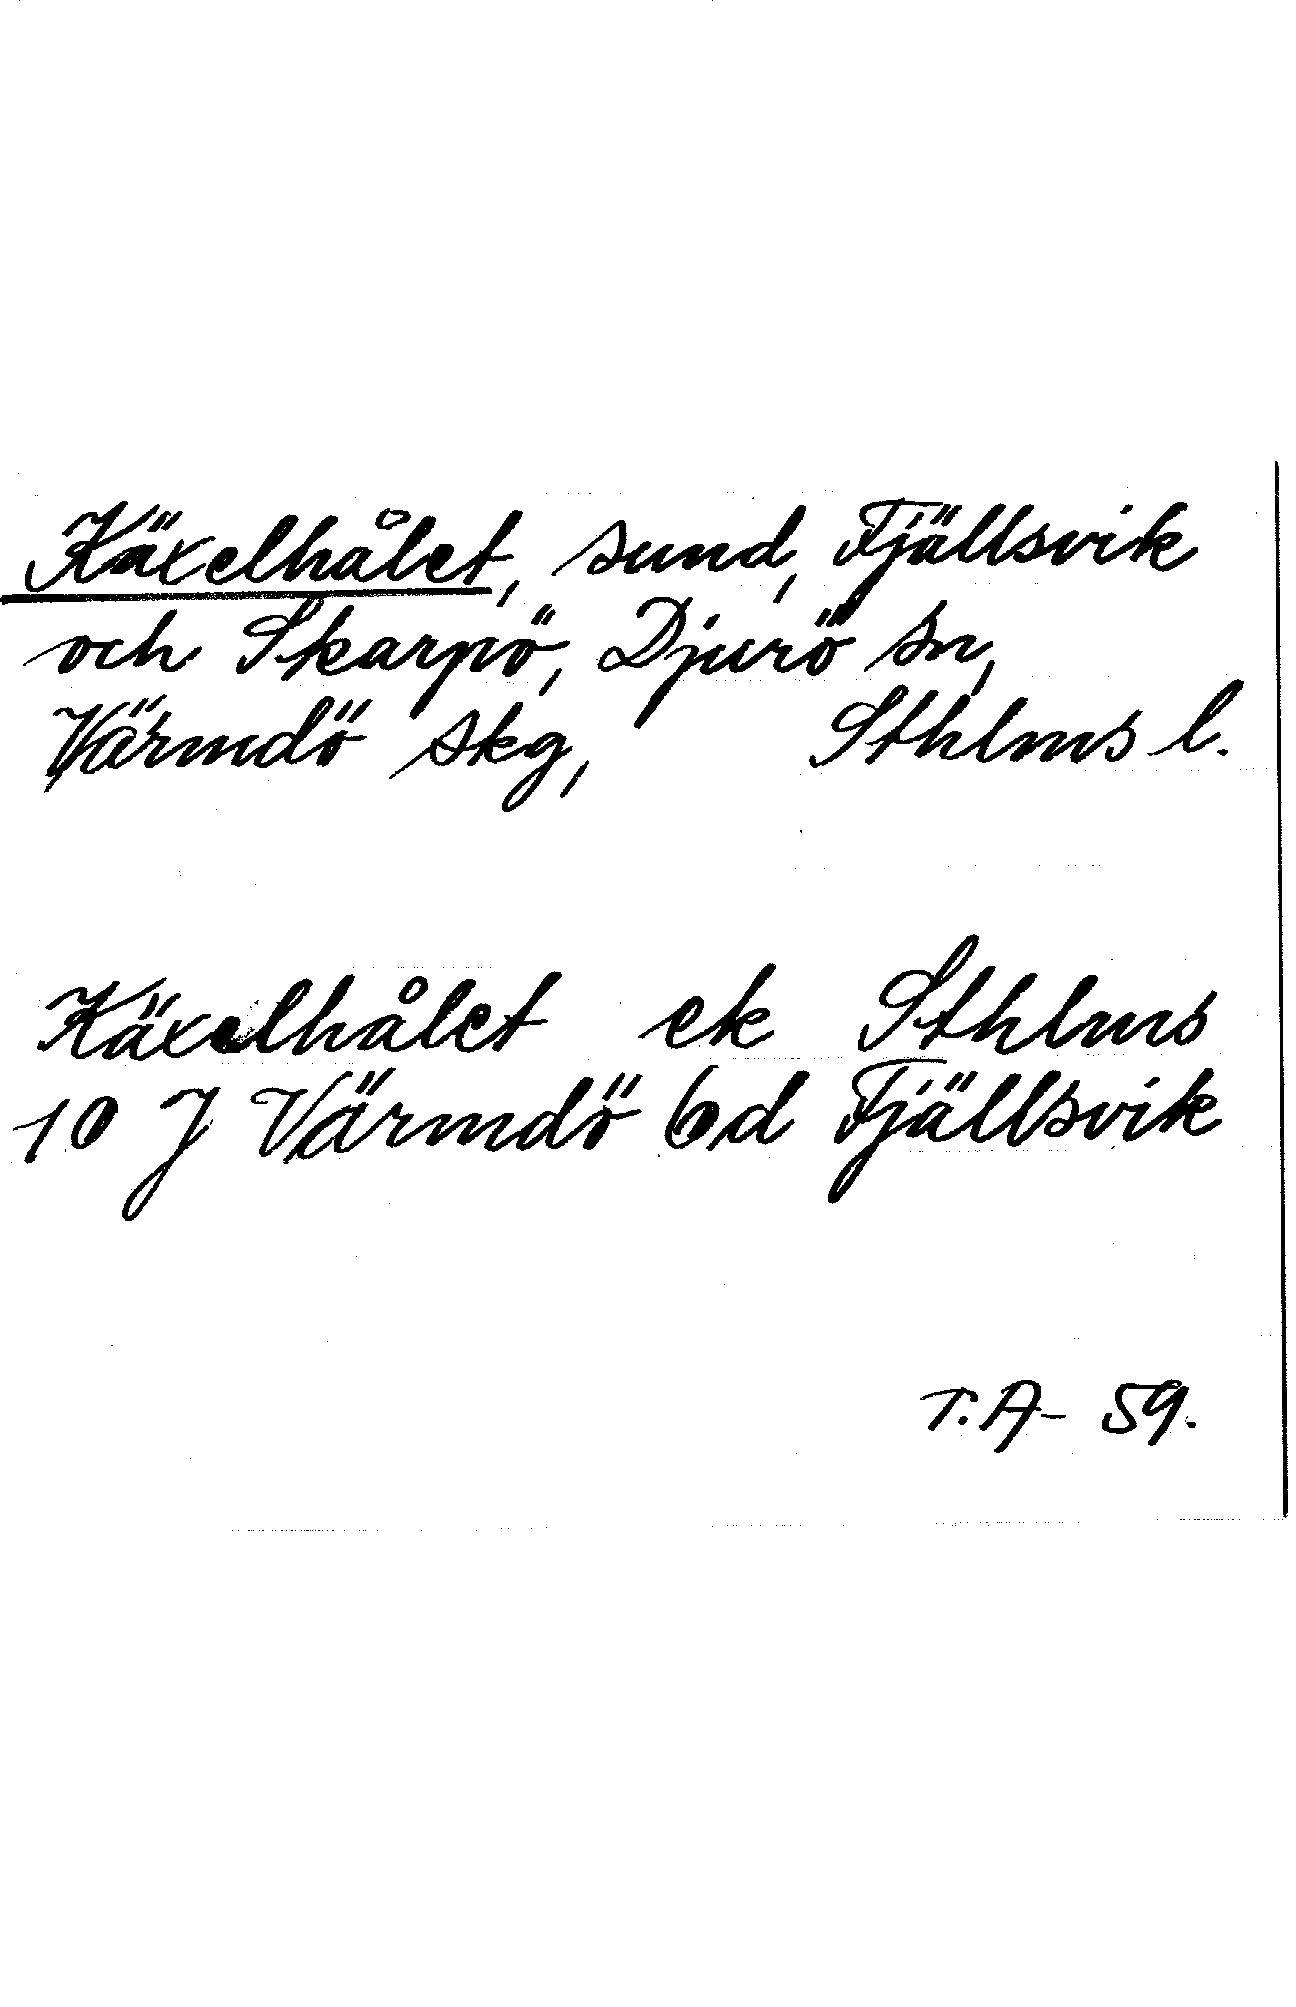 Käxelhålet, sund, Fjällsvik
och Skarpö, Djurö sn,
Värmdö skg, Sthlms l.
Käxelhålet ek Sthlms
10 J Värmdö 6d Fjällsvik
T. A- 59.